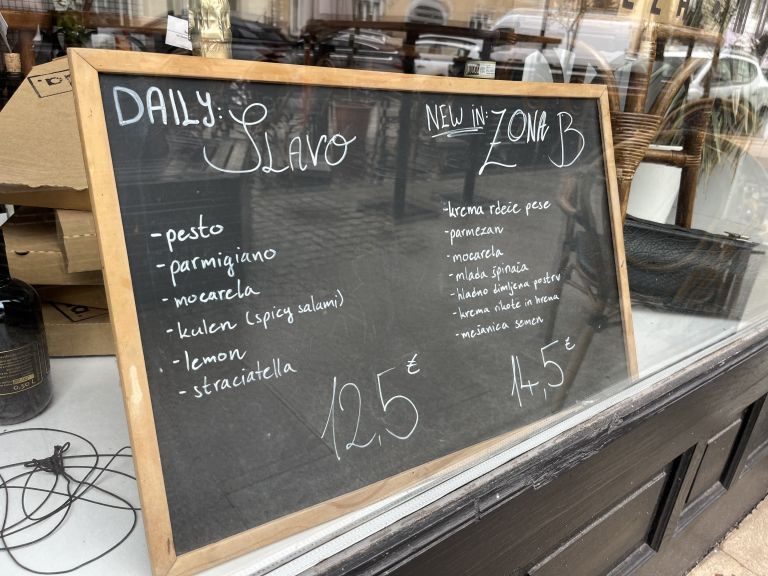 DAILY: SLAVO
-pesto
-parmigiano
-mocarela
-kulen (spicy salami)
-lemon
-straciatella
12,5 €
NEW IN: ZONA B
-krema rdeče pese
-parmezan
-mocarela
-mlada špinača
-hladno dimljena postrv
-krema rikote in hrena
-mešanica semen
14,5 €
0,50 L